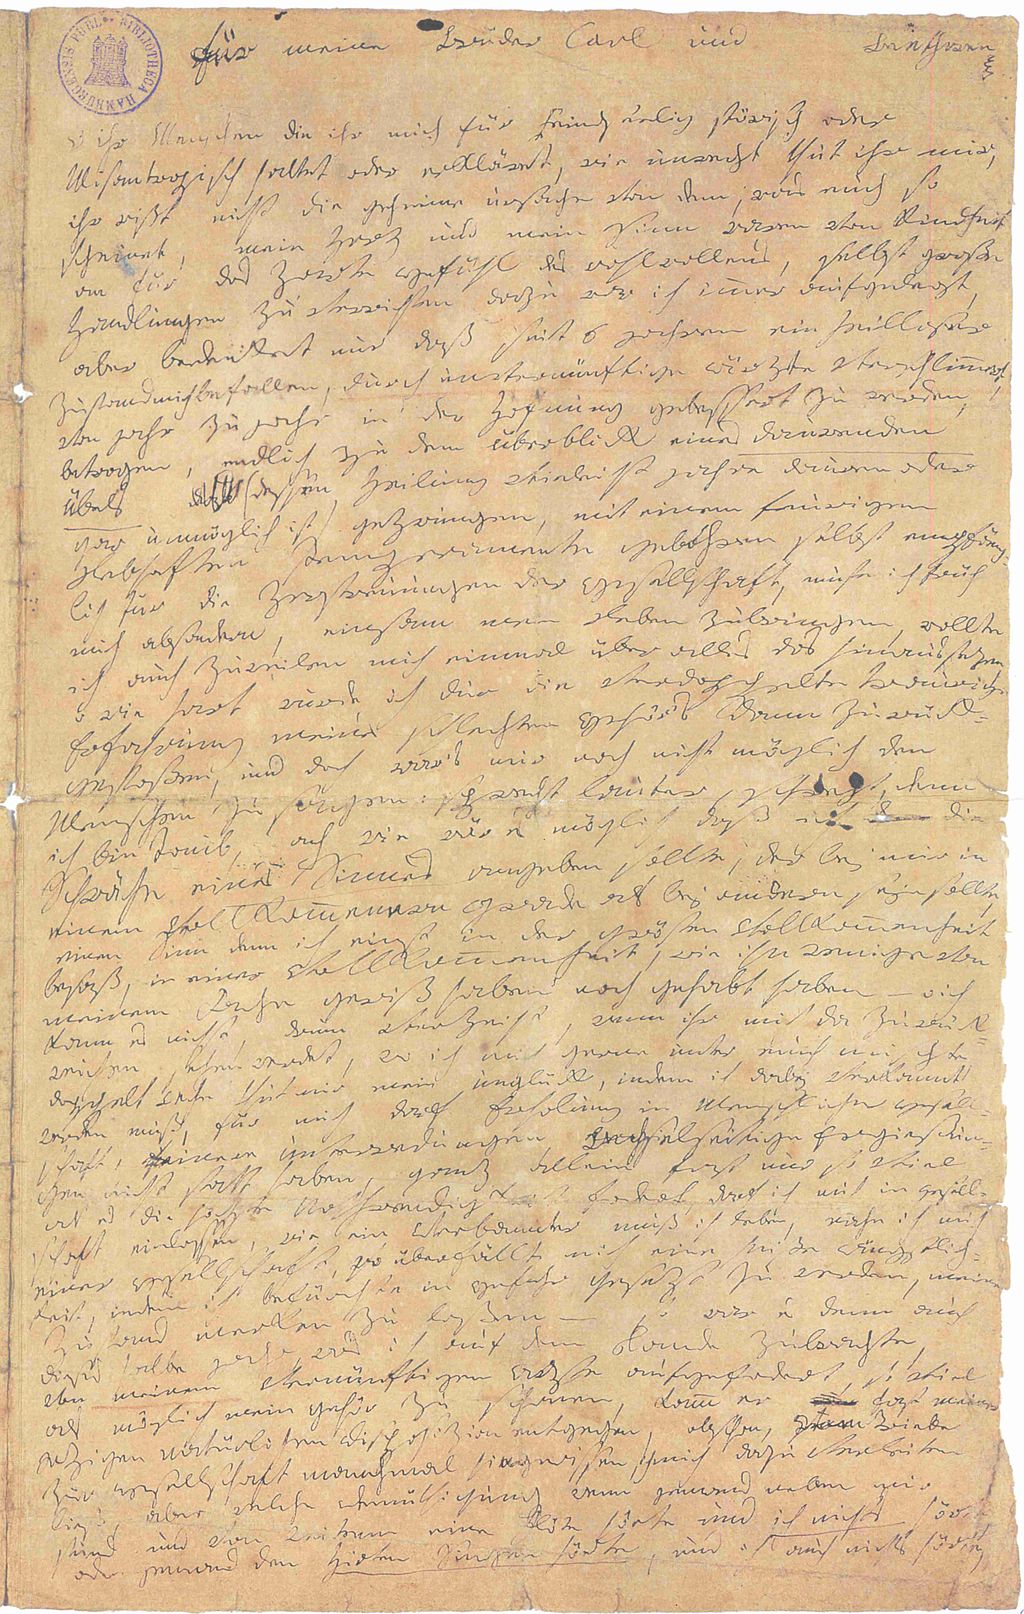 HAMBURGENSIS PUBL. BIBLIOTHECA
für meine Brüder Carl und Beethowen
o ihr Menschen die ihr mich für Feindseelig störisch oder
Misantropisch haltet oder erkläret, wie unrecht thut ihr mir,
ihr wißt nicht die geheime ursache von dem, was euch so
scheinet, mein Herz und mein Sinn waren von Kindheit
an für das Zarte Gefühl des wohlwollens, selbst große
Handlungen zu verrichten dazu war ich immer aufgelegt,
aber bedenket nur daß seit 6 jahren ein heilloser
Zustand mich befallen, durch unvernünftige ärzte verschlimmert,
von jahr zu jahr in der Hofnung gebessert zu werden,
betrogen, endlich zu dem überblick eines daurenden
Übels (dessen Heilung vieleicht jahre dauren oder
gar unmöglich ist) gezwungen, mit einem feuerigen
Lebhaften Temperamente gebohren selbst empfäng-
lich für die Zerstreuungen der Gesellschaft, muste ich früh
mich absondern, einsam mein Leben zubringen, wollte
ich auch zuweilen mich einmal über alles das hinaussezen,
o wie hart wurde ich dur die verdoppelte traurige
Erfahrung meines schlechten Gehör's dann zurück-
gestoßen, und doch war's mir noch nicht möglich den
Menschen zu sagen: sprecht lauter, schreyt, denn
ich bin Taub, ach wie wär es möglich daß ich die
Schwäche eines Sinnes angeben sollte, der bey mir in
einem Vollkommenern Grade als bey andern seyn sollte,
einen Sinn denn ich einst in der grösten Vollkommenheit
besaß, in einer Vollkommenheit, wie ihn wenige von
meinem Fache gewiß haben noch gehabt haben — o ich
kann es nicht, drum verzeiht, wenn ihr mich da zurück-
weichen sehen werdet, wo ich mich gerne unter euch mischte
doppelt Wehe thut mir mein unglück, indem ich dabey verkannt
werden muß, für mich darf Erholung in Menschlicher Gesell-
schaft, feinere unterredungen, Wechselseitige Ergießun-
gen nicht statt haben, ganz allein fast nur so viel
als es die höchste Nothwendigkeit fodert, darf ich mich in gesell-
schaft einlassen, wie ein Verbannter muß ich leben, nahe ich mich
einer Gesellschaft, so überfällt mich eine heiße ängstlich-
keit, indem ich befürchte in Gefahr gesezt zu werden, meinen
Zustand merken zu laßen — so war es denn auch
dieses halbe jahr, was ich auf dem Lande zubrachte,
von meinem vernünftigen Arzte aufgefodert, so viel
als möglich mein Gehör zu schonen, kamm er fast meiner
jezigen natürlichen Disposizion entgegen, obschon, Vom Triebe
zur Gesellschaft manchmal hingerissen, ich mich dazu verleiten
ließ, aber welche Demüthigung wenn jemand neben mir
stund und von weitem eine flöte hörte und ich nichts hörte
oder jemand den Hirten Singen hörte, und ich auch nichts hörte,